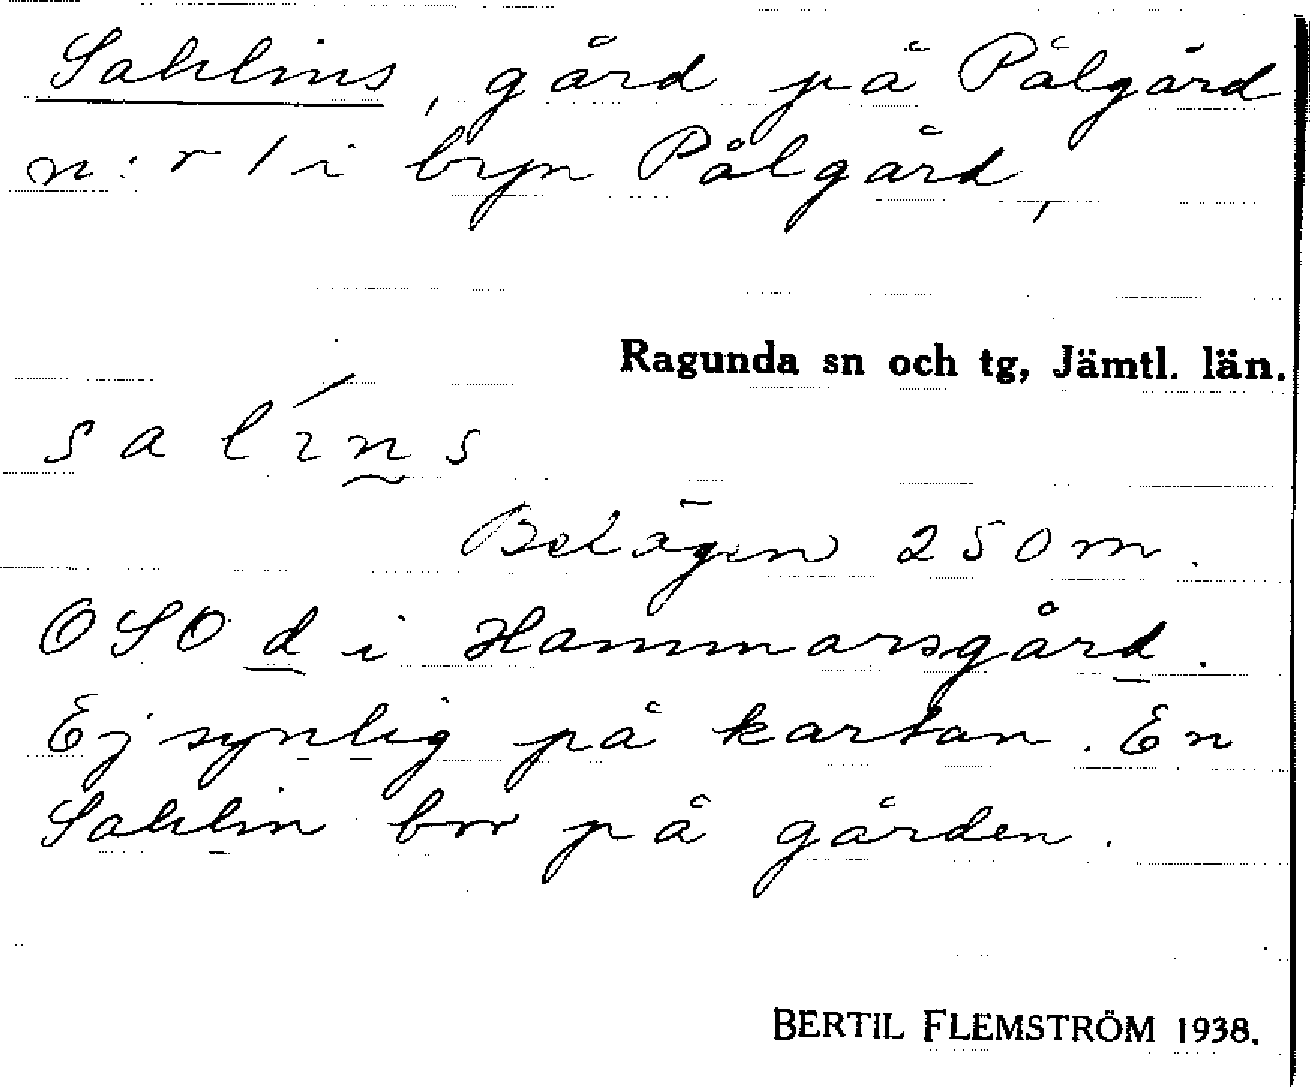 Sahlins, gård på Pålgård
n:r 1 i byn Pålgård,
Ragunda sn och tg, Jämtl. län.
salíns
Belägen 250 m.
OSO d i Hammarsgård.
Ej synlig på kartan. En
Sahlin bor på gården.
BERTIL FLEMSTRÖM 1938.